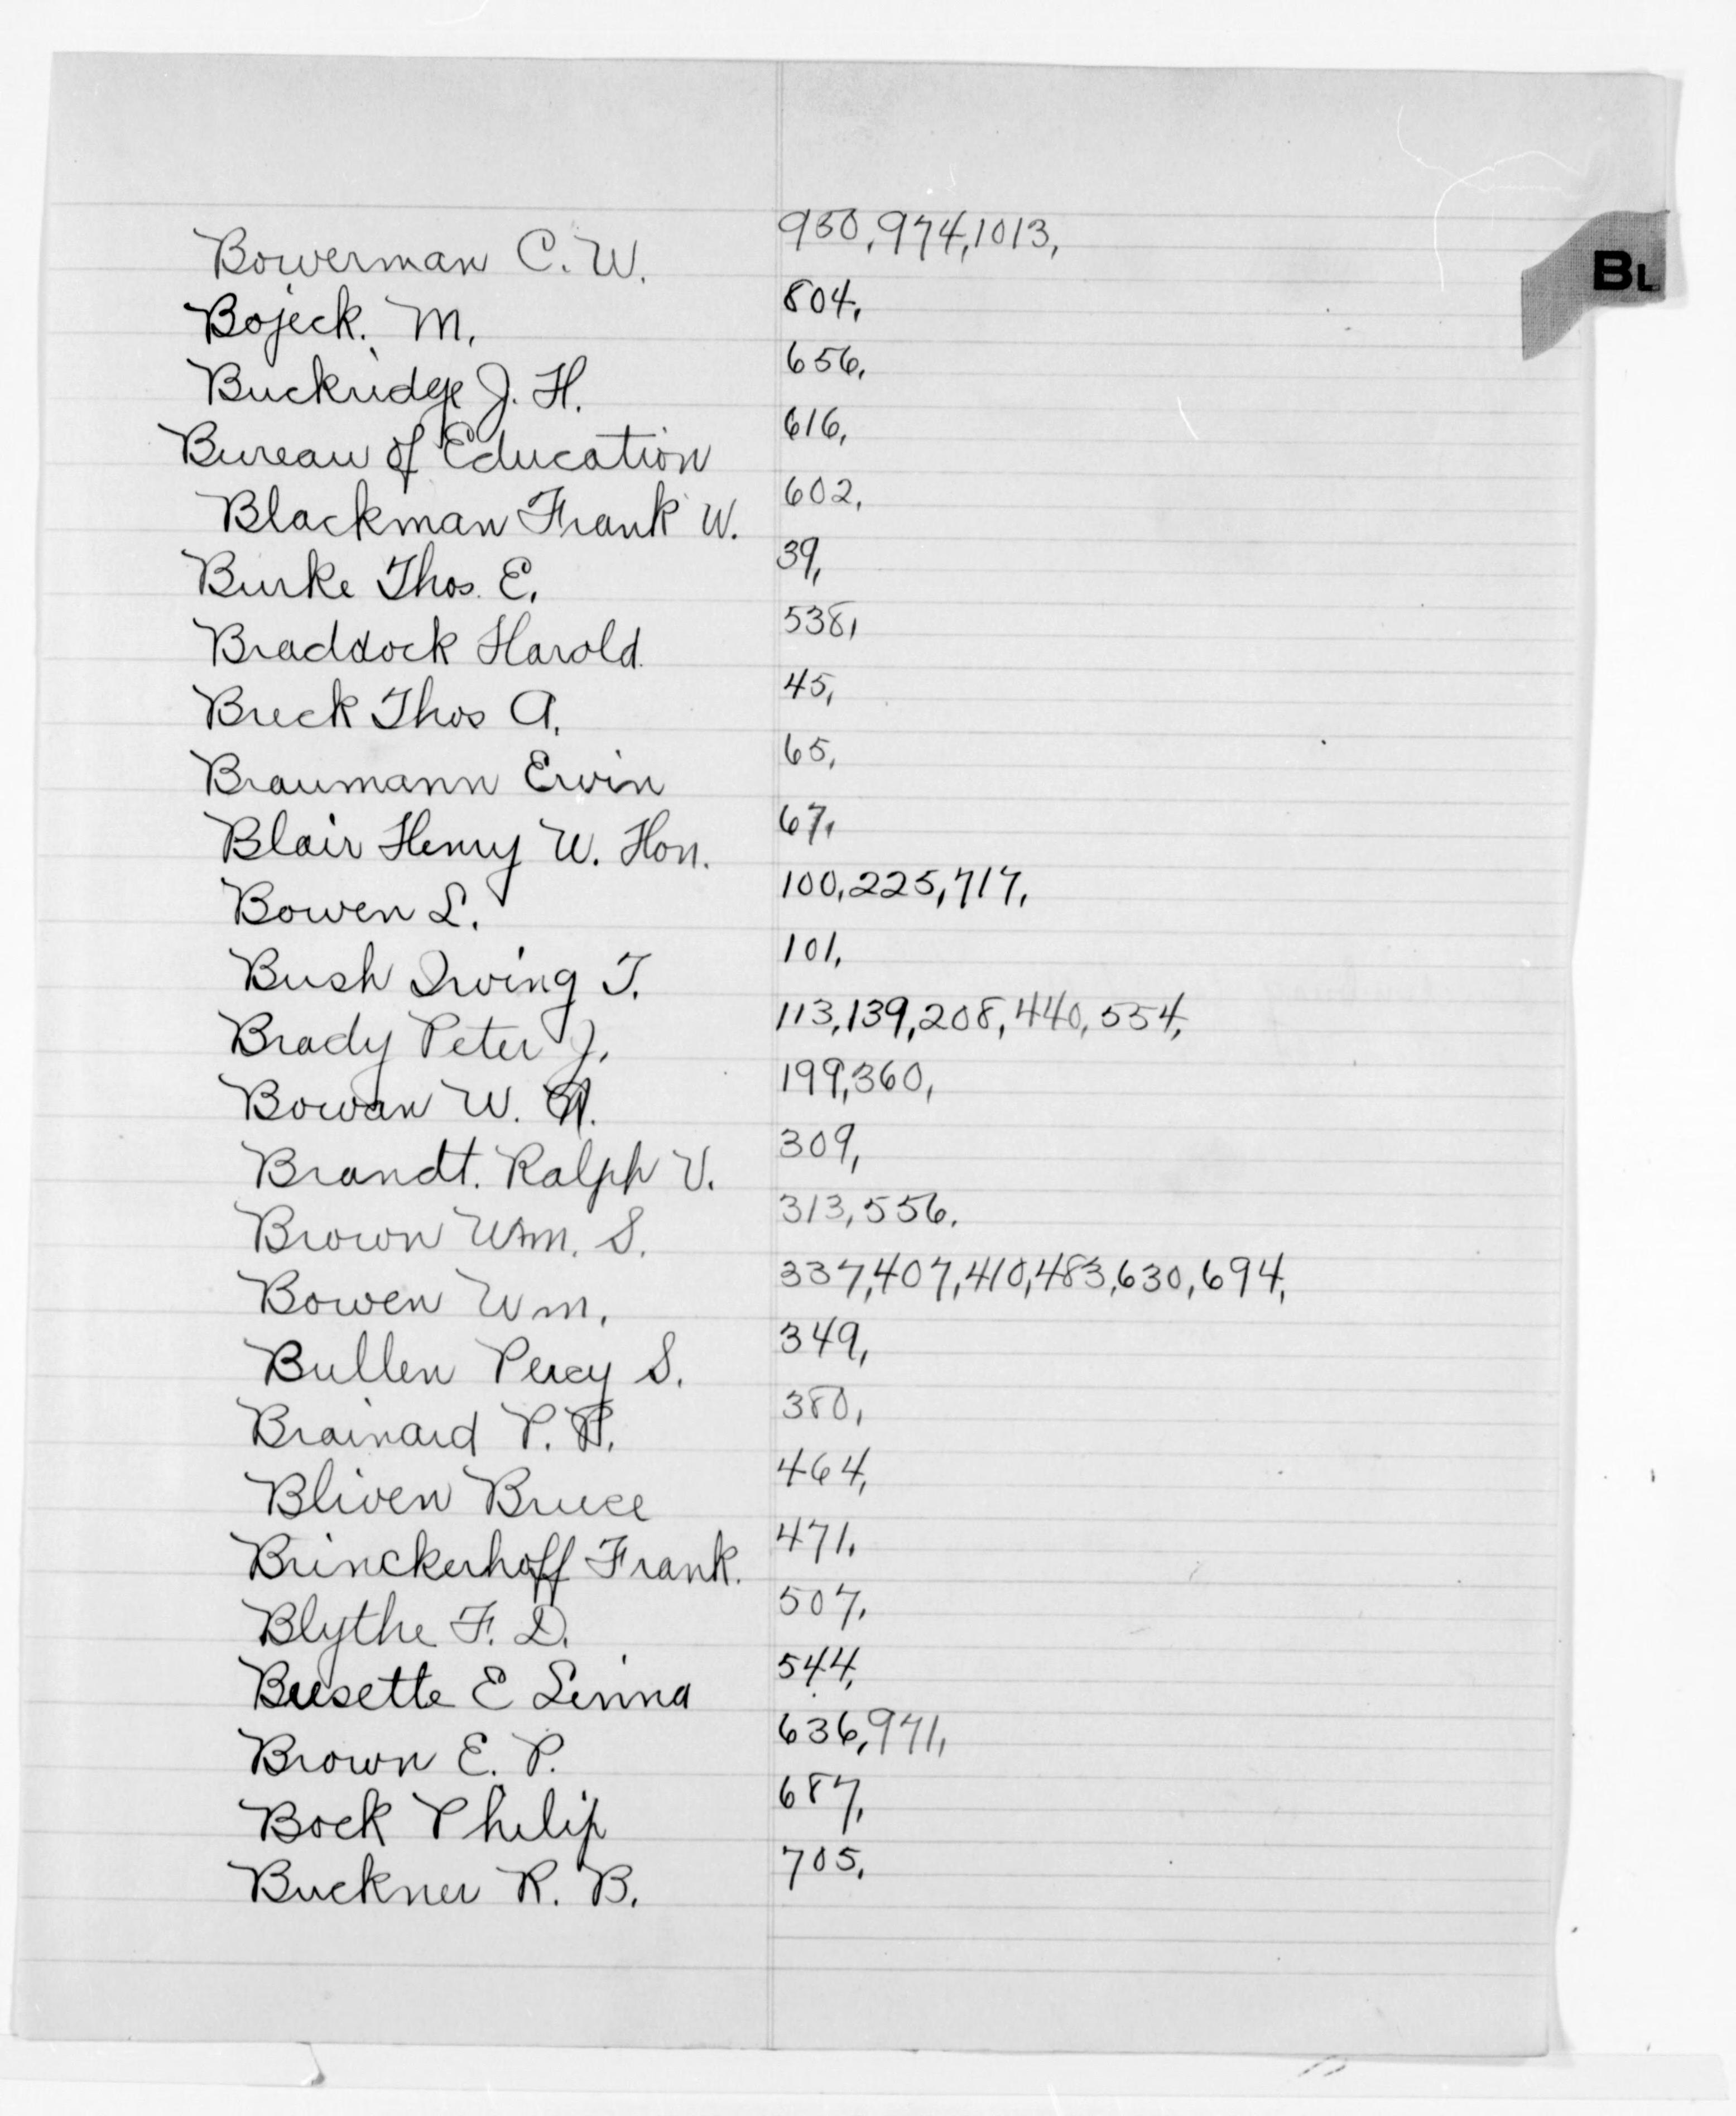 Bowerman C. W. 930, 974, 1013,
BL
Bojeck. M. 804,
Buckridge J. H. 656,
Bureau of Education 616,
Blackman Frank W. 602,
Burke Thos. E. 39,
Braddock Harold 538,
Breck Thos A. 45,
Braumann Ervin 65,
Blair Henry W. Hon. 67,
Bowen L. 100, 225, 717,
Bush Irving T. 101,
Brady Peter J. 113, 139, 208, 440, 554,
Bowan W. 199, 360,
Brandt. Ralph V. 309,
Brown Wm. S. 313, 556.
Bowen Wm. 337, 407, 410, 483, 630, 694,
Bullen Percy S. 349,
Brainard P. P. 380,
Bliven Bruce 464,
Brinckerhoff Frank. 471.
Blythe F. D. 507,
Busette E Linna 544,
Brown E. P. 636, 971,
Bock Philip 687,
Buckner R. B. 705,